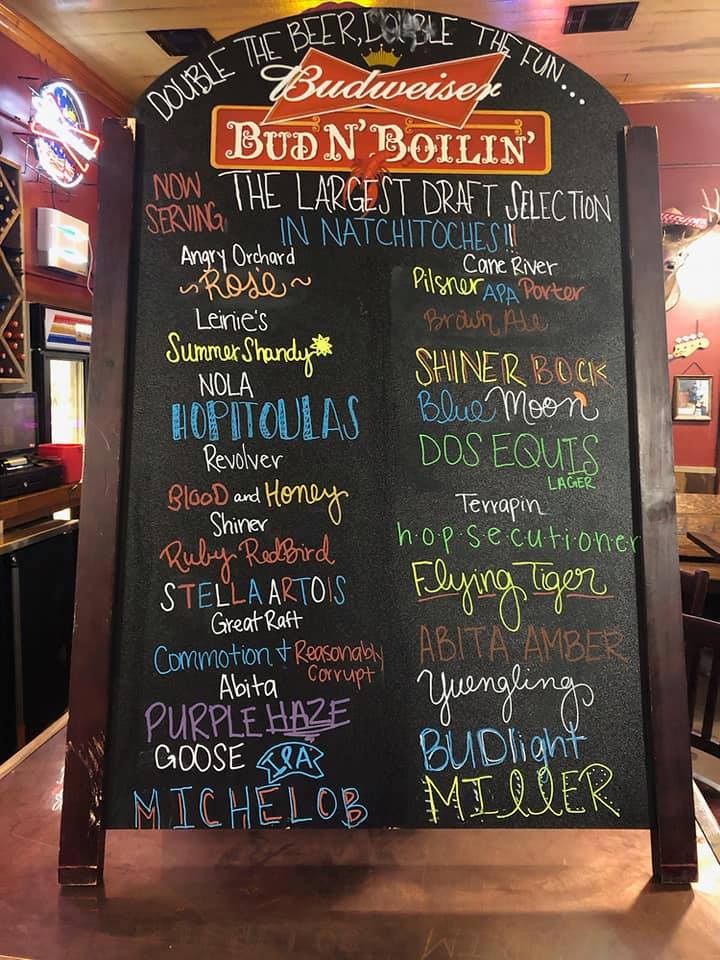 DOUBLE THE BEER, DOUBLE THE FUN...
Budweiser
BUD N' BOILIN'
NOW SERVING
THE LARGEST DRAFT SELECTION
IN NATCHITOCHES!!!
Angry Orchard
~Rosé~
Leinie's
Summer Shandy
NOLA
HOPITOULAS
Revolver
Blood and Honey
Shiner
Ruby RedBird
STELLA ARTOIS
Great Raft
Commotion + Reasonably
Corrupt
Abita
PURPLE HAZE
GOOSE IPA
MICHELOB
Cane River
Pilsner APA Porter
Brown Ale
SHINER BOCK
Blue Moon
DOS EQUIS
LAGER
Terrapin
hopsecutioner
Flying Tiger
ABITA AMBER
Yuengling
BUDlight
MILLER